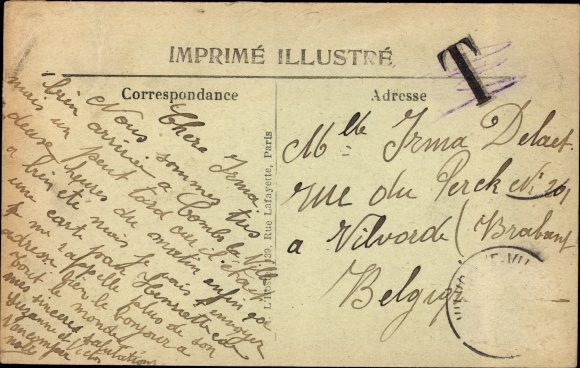 IMPRIMÉ ILLUSTRÉ
T
Correspondance
Adresse
Chère Irma
Nous sommes très
bien arrivé a Combs la Ville
mais un peut tard car c'était
deux heures du matin enfin ça
a bien été mais je vais envoyer
une carte pour Henriette car
je me rappelle plus de son
adresse bien le bonjour a
tout le monde
mes sincères salutations
Suzanne et Victor
Mlle Irma Delaet
rue du Perck No 261
a Vilvorde (Brabant
Belgique
139, Rue Lafayette, Paris